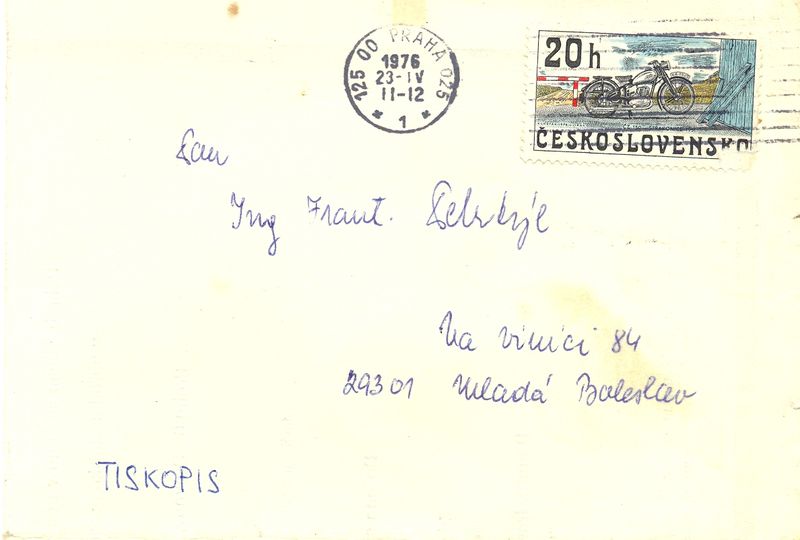 125 00 PRAHA 025
1976
23-IV
11-12
* 1 *
20 h
ČESKOSLOVENSKO
Pan
Ing Frant.
Na vinici 84
29301 Mladá Boleslav
TISKOPIS